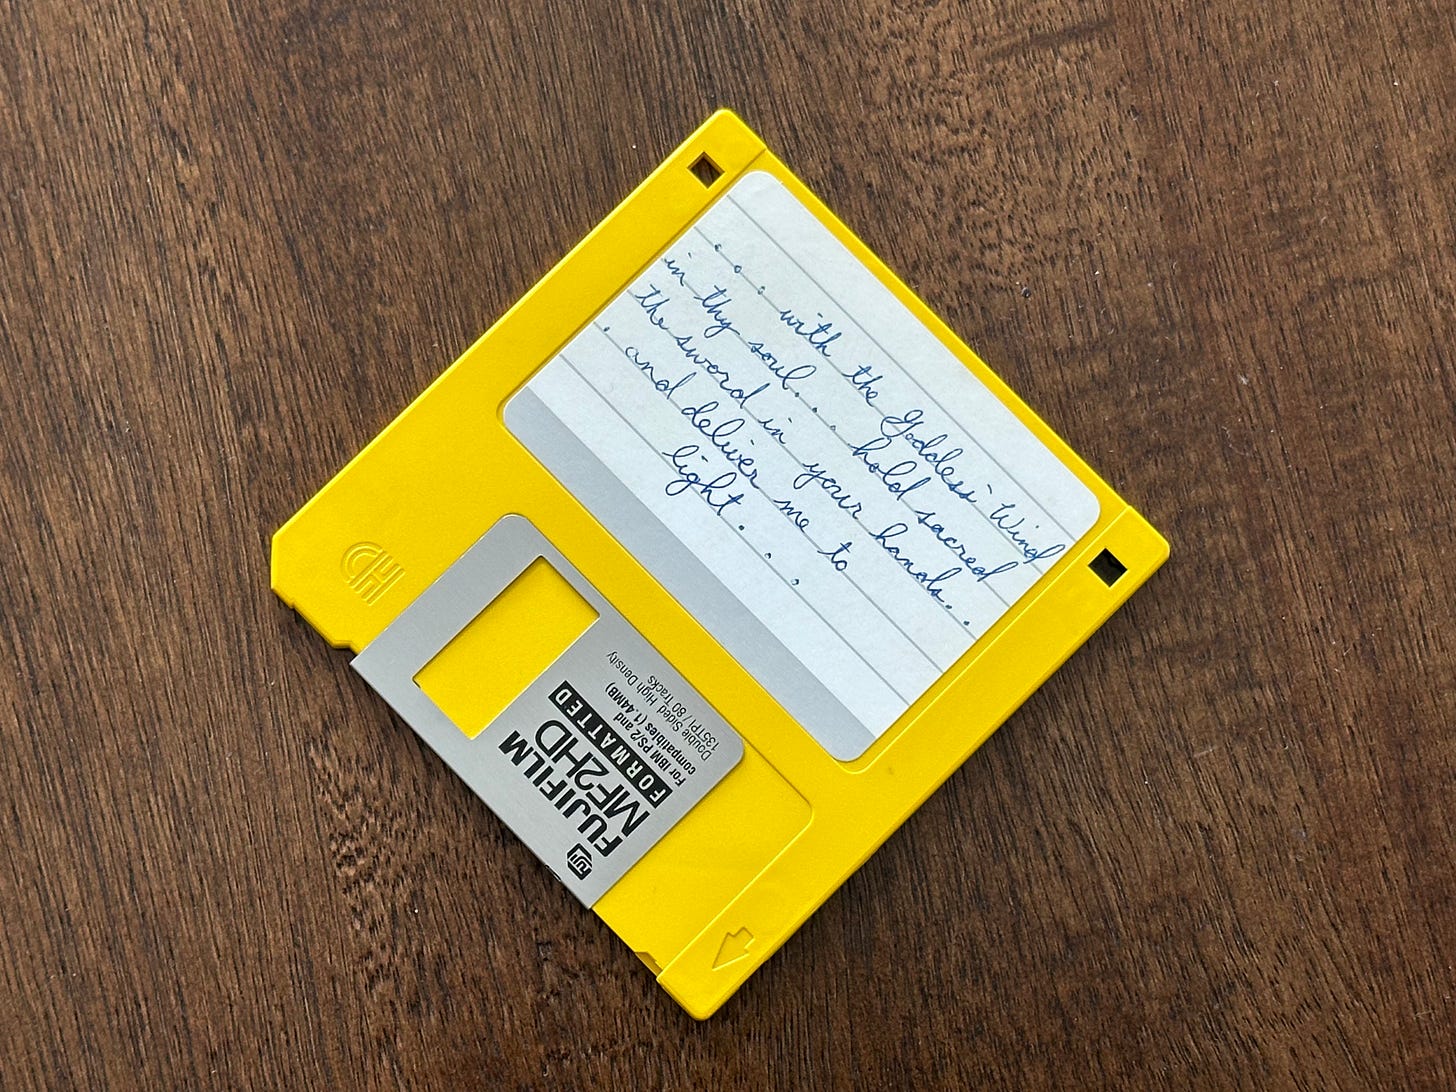 . . . with the Goddess' Wind
in thy soul . . . hold sacred
the sword in your hands. . .
. and deliver me to
light. . .
HD
FUJI
FUJIFILM
MF2HD
FORMATTED
For IBM PS/2 and
compatibles (1.44MB)
Double Sided High Density
135TPI / 80 Tracks